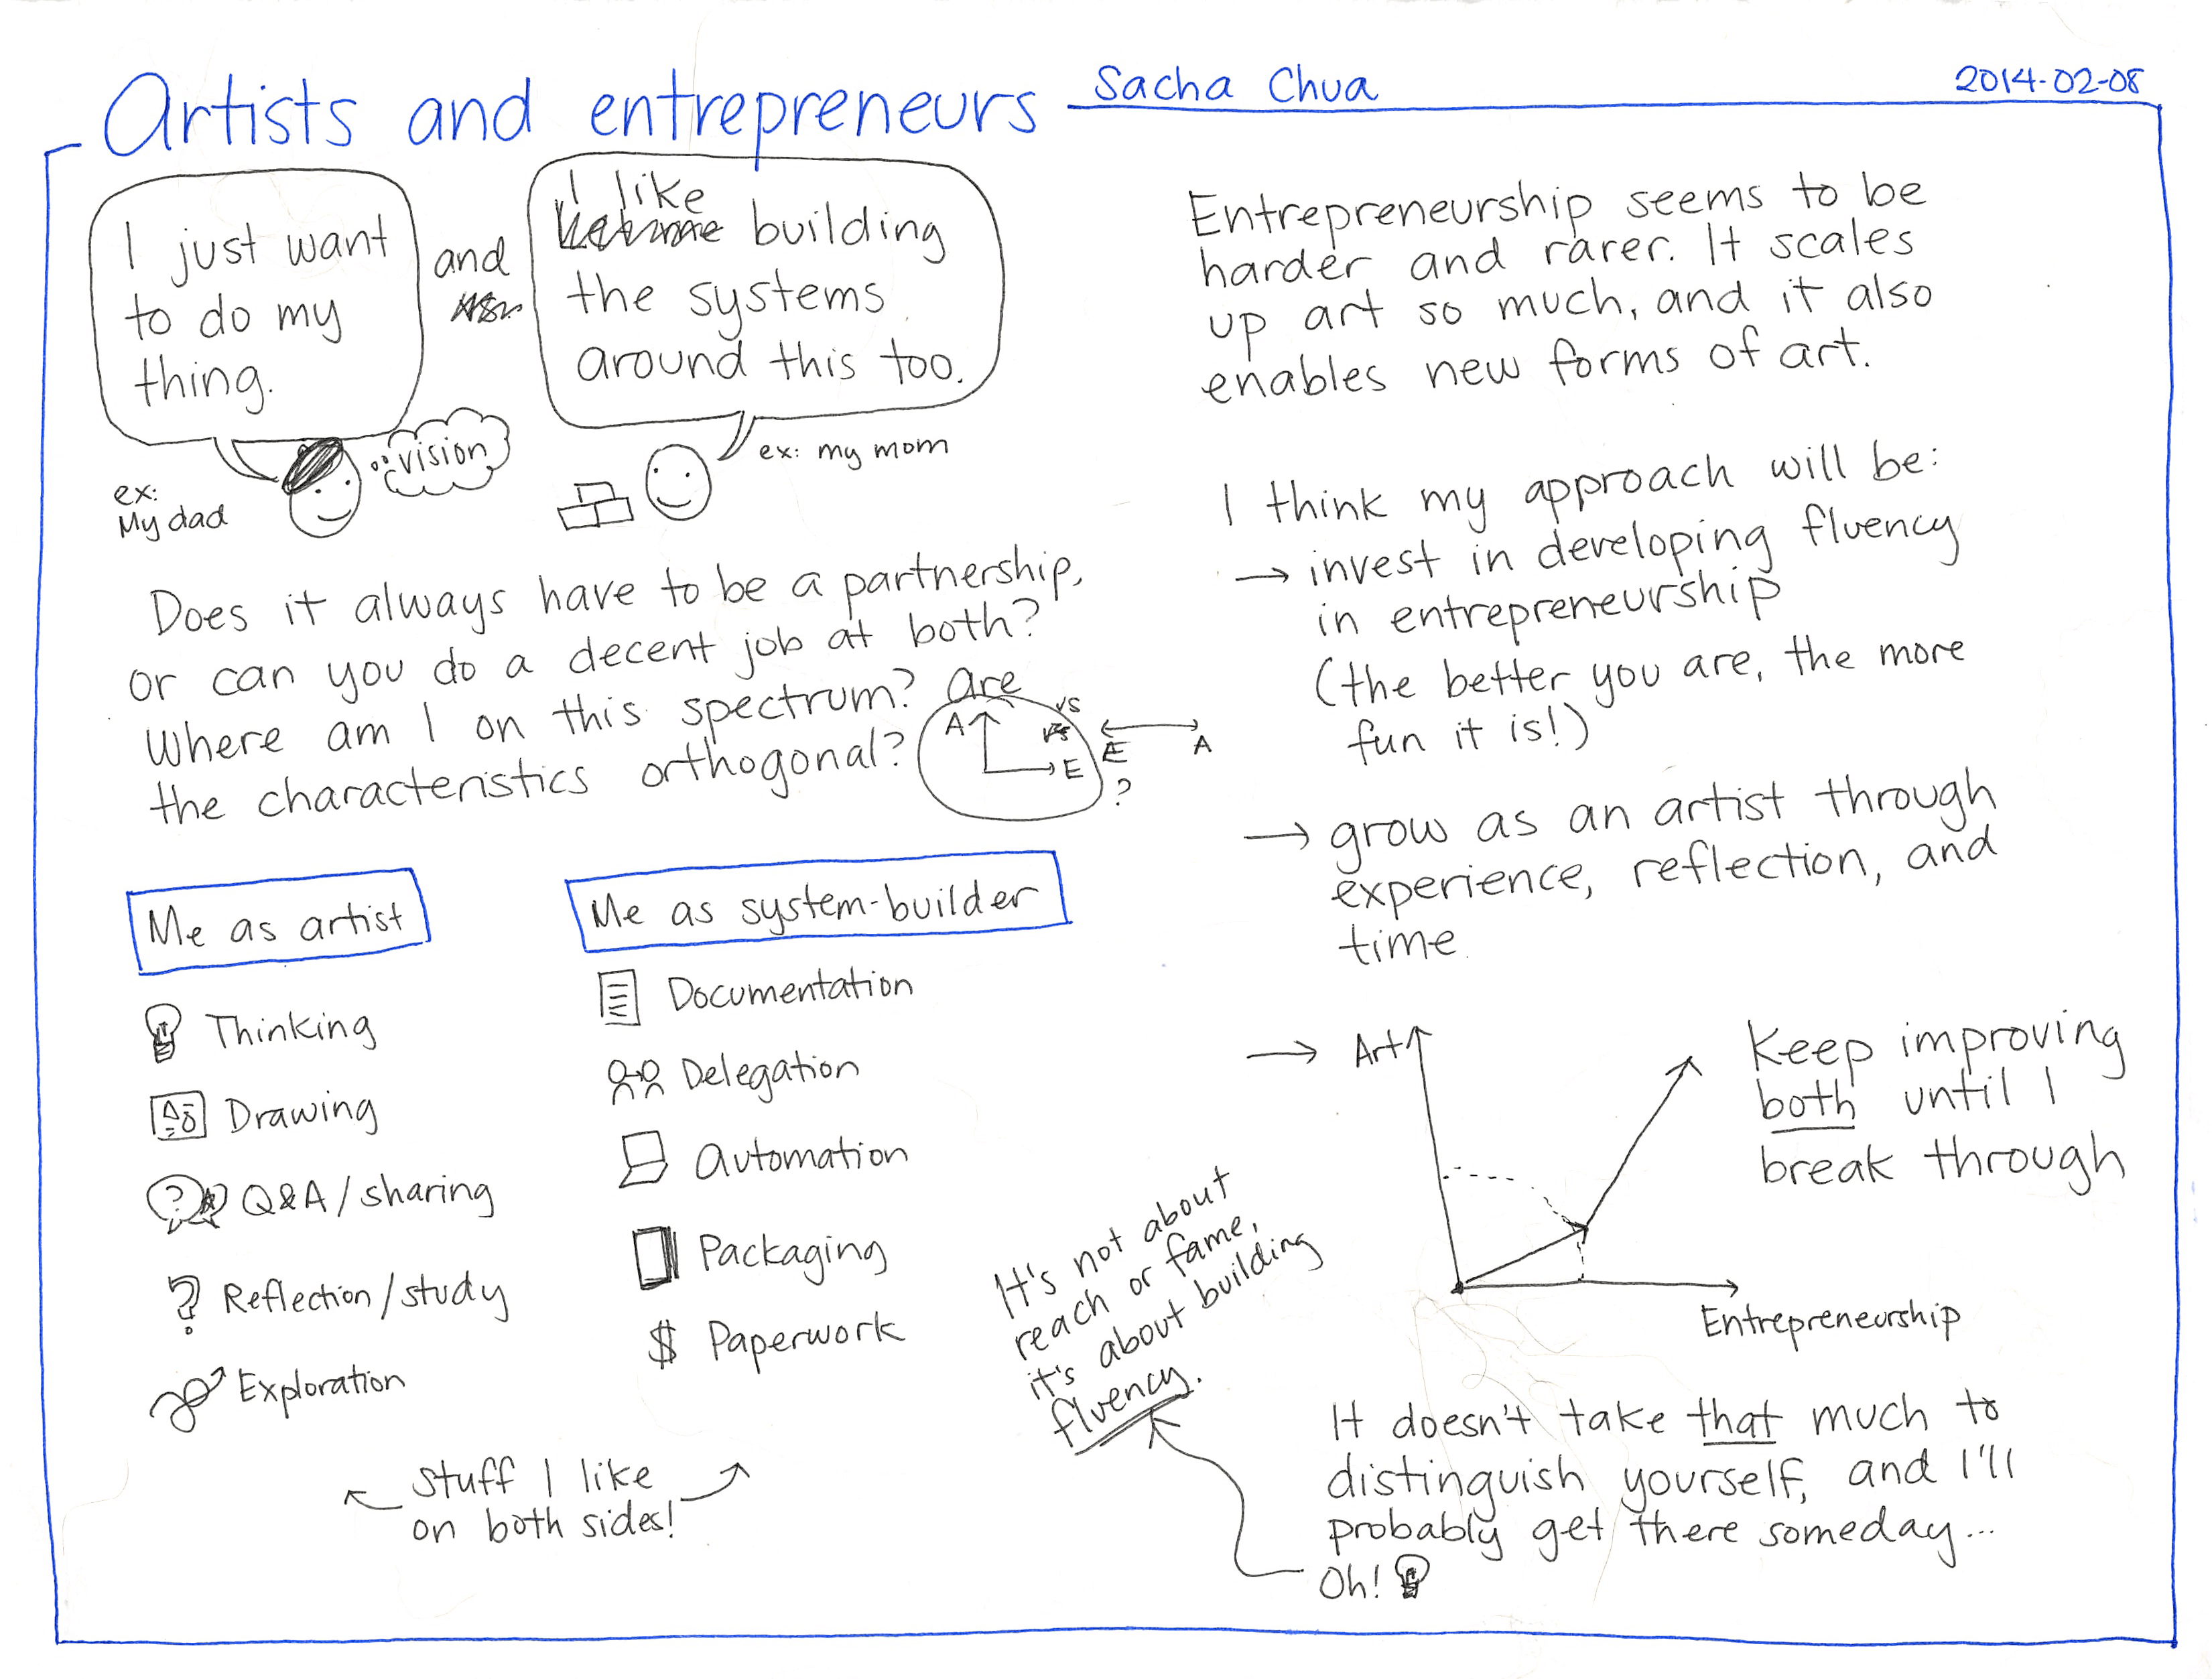 Artists and entrepreneurs
Sacha Chua
2014-02-08
I just want
to do my
thing.
and
I like
building
the systems
around this too.
vision
ex:
My dad
ex: my mom
Does it always have to be a partnership,
or can you do a decent job at both?
Where am I on this spectrum? Are
the characteristics orthogonal?
A
E
vs
E
A
?
Me as artist
Thinking
Drawing
Q&A / sharing
Reflection / study
Exploration
Me as system-builder
Documentation
Delegation
Automation
Packaging
$ Paperwork
Stuff I like
on both sides!
Entrepreneurship seems to be
harder and rarer. It scales
up art so much, and it also
enables new forms of art.
I think my approach will be:
→ invest in developing fluency
in entrepreneurship
(the better you are, the more
fun it is!)
→ grow as an artist through
experience, reflection, and
time.
→ Art
Entrepreneurship
Keep improving
both until I
break through
It's not about
reach or fame,
it's about building
fluency.
It doesn't take that much to
distinguish yourself, and I'll
probably get there someday...
Oh!